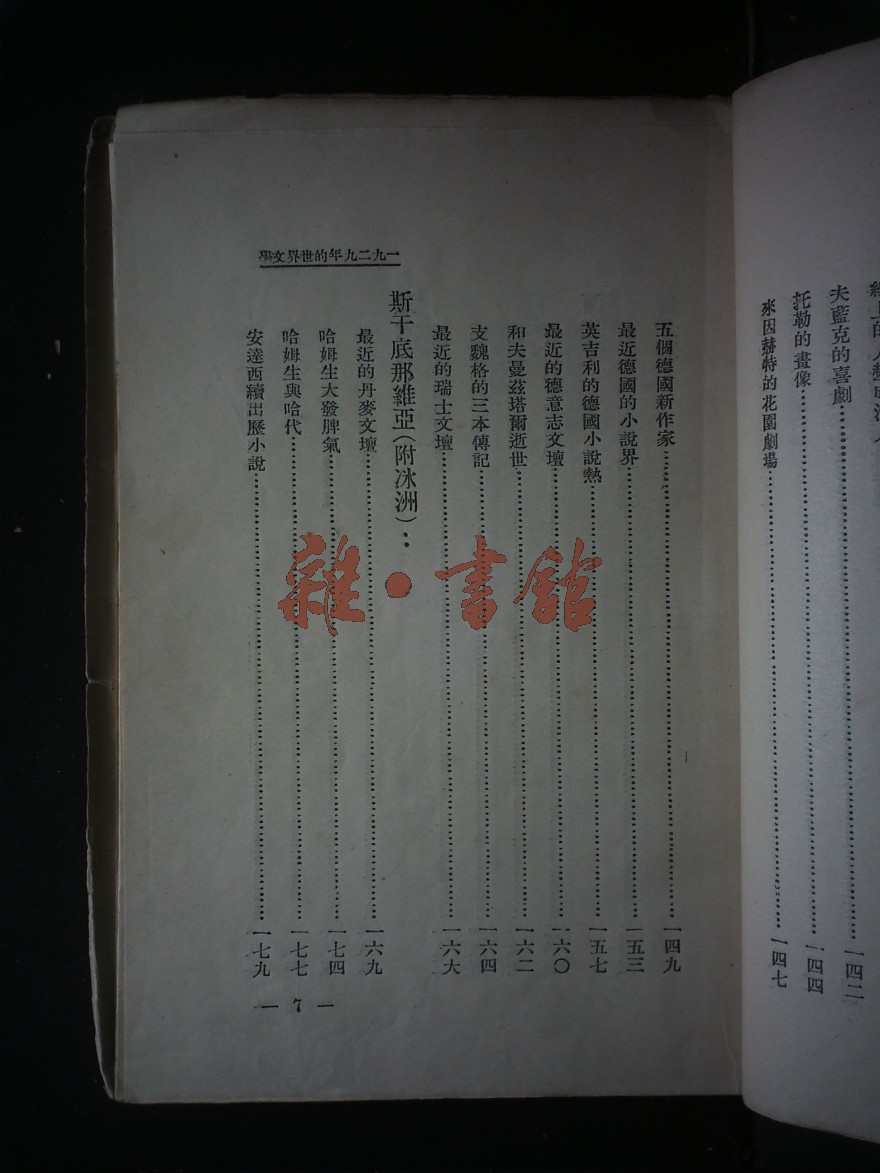 夫藍克的喜劇……一四二
托勒的畫像……一四四
來因赫特的花園劇場……一四七
一九二九年的世界文學
五個德國新作家……一四九
最近德國的小說界……一五三
英吉利的德國小說熱……一五七
最近的德意志文壇……一六〇
和夫曼茲塔爾逝世……一六二
支魏格的三本傳記……一六四
最近的瑞士文壇……一六六
斯干底那維亞(附冰洲):
最近的丹麥文壇……一六九
哈姆生大發脾氣……一七四
哈姆生與哈代……一七七
安達西續出歷史小說……一七九
— 7 —
雜·書館